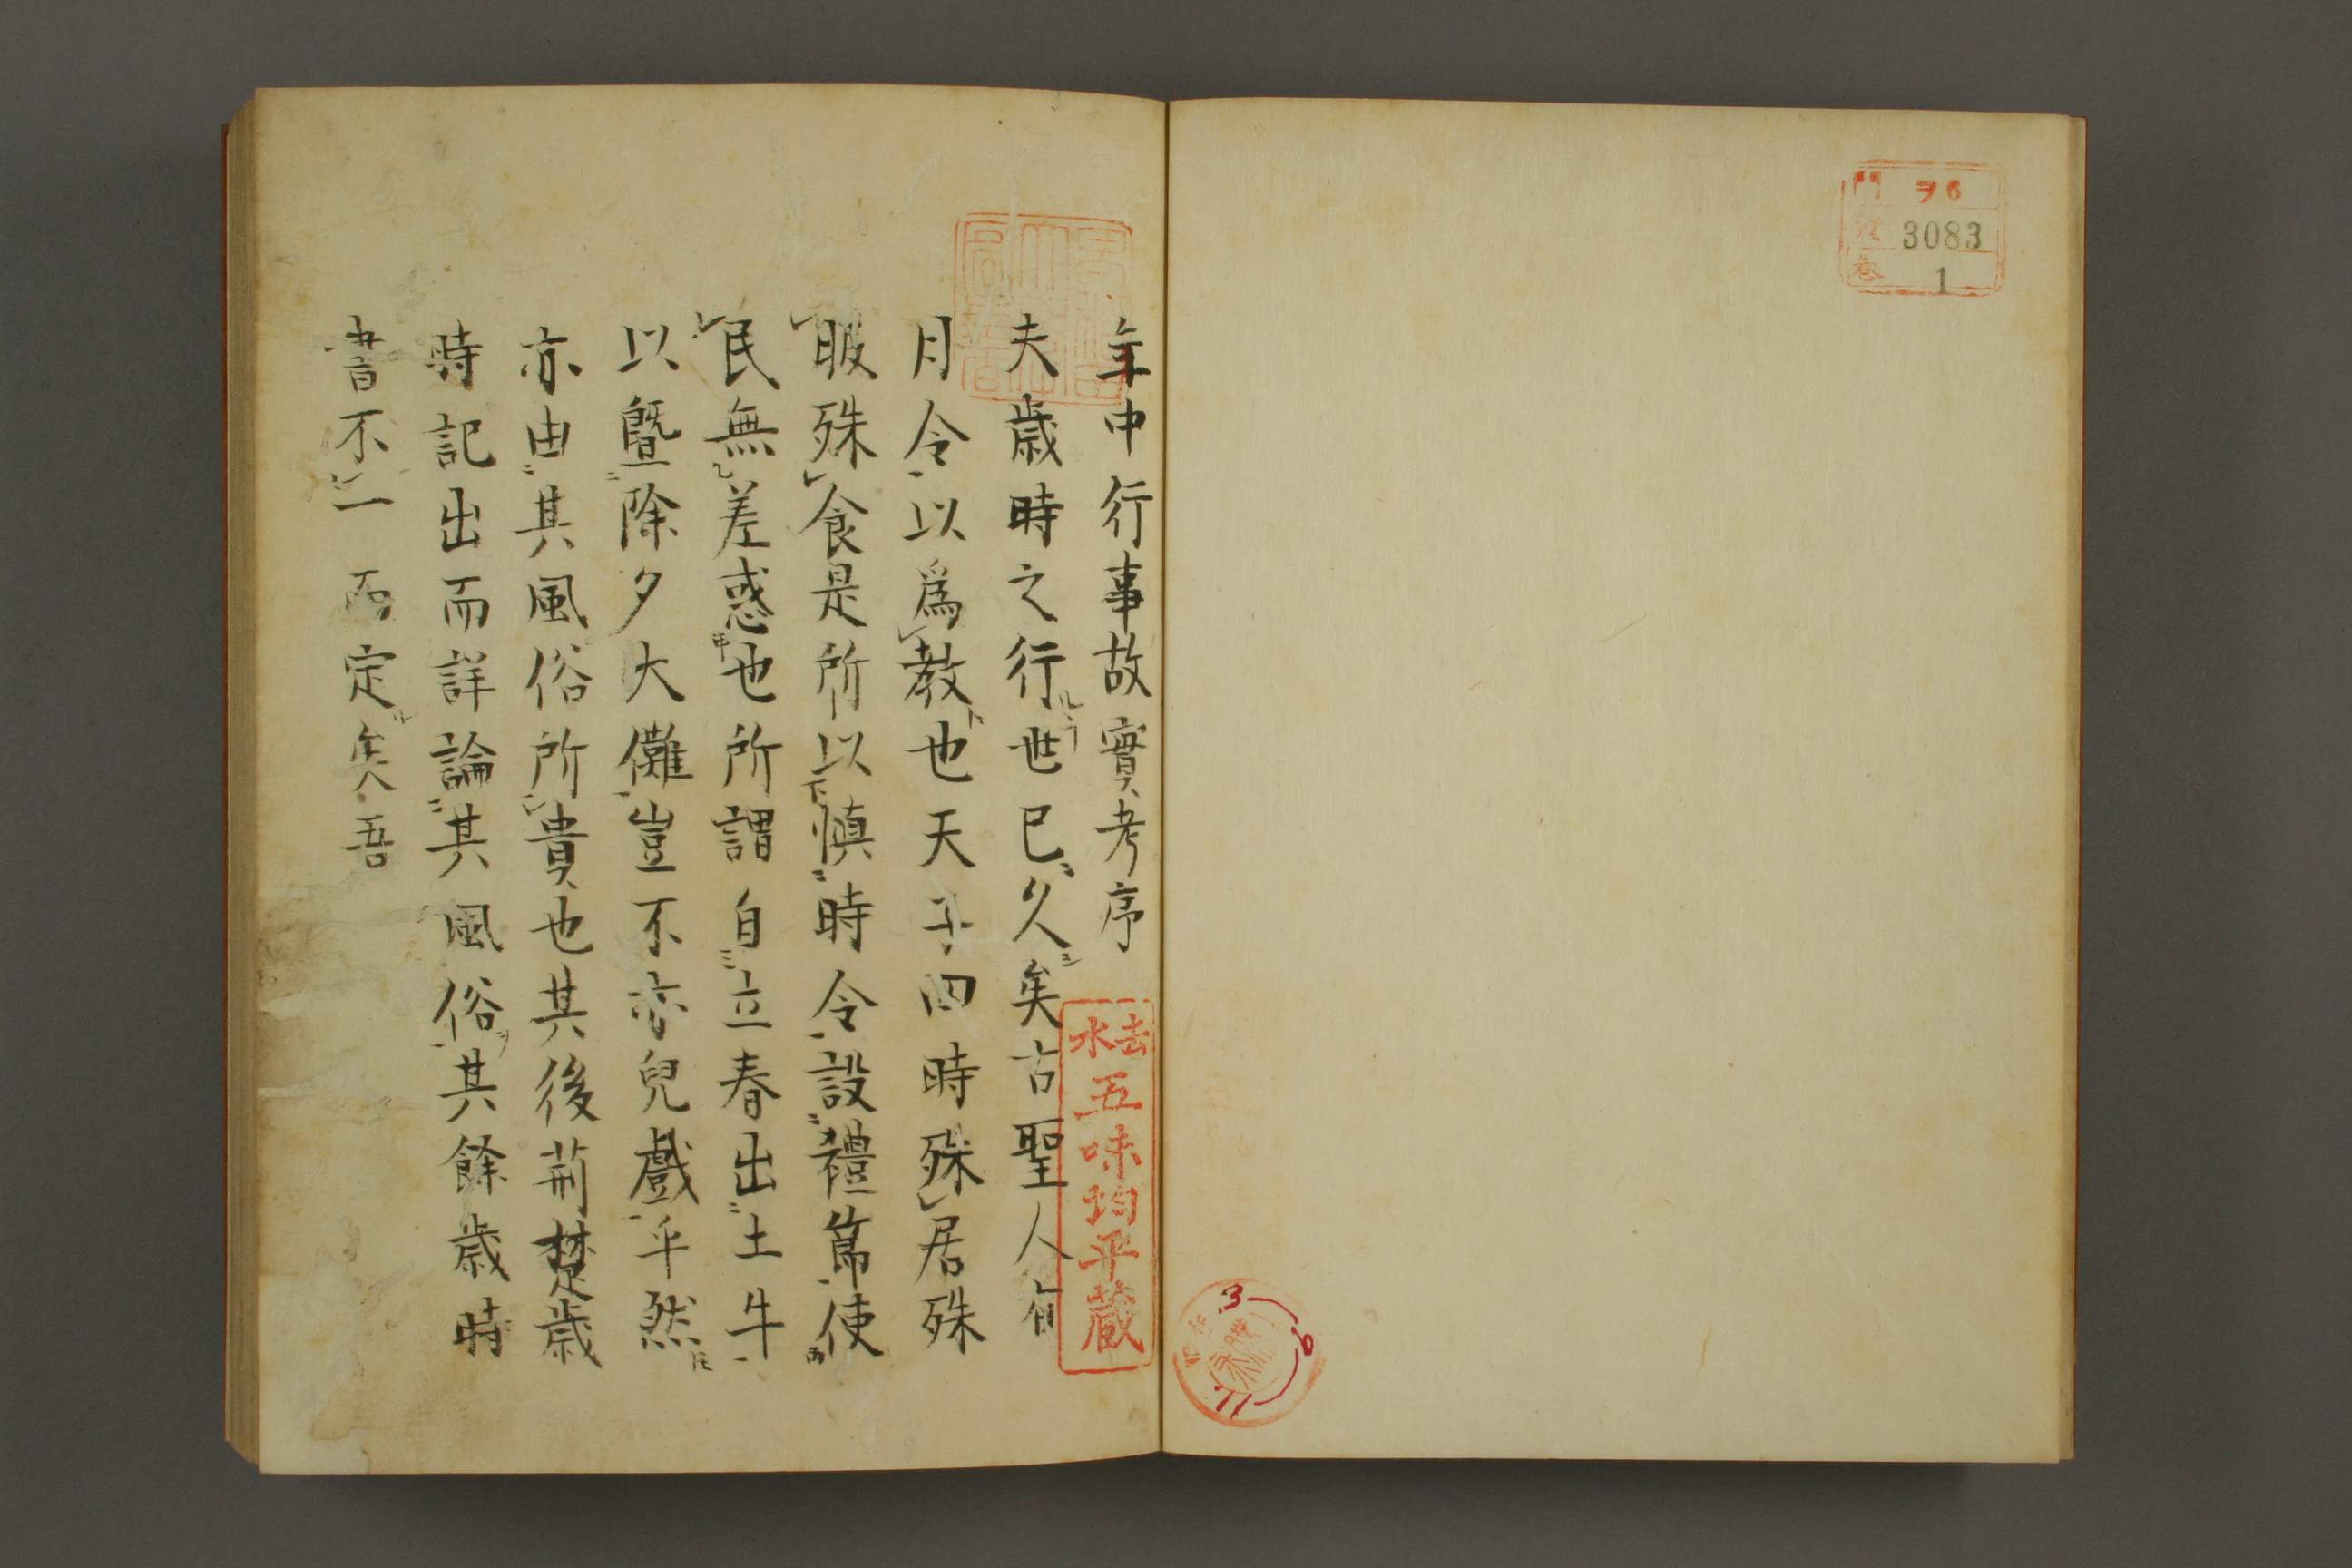 門 ヲ6
號 3083
卷 1
年中行事故實考序
夫歳時之行世已久矣古聖人有
月令以爲教也天子四時殊居殊
服殊食是所以慎時令設禮節使
民無差惑也所謂自立春出土牛
以曁除夕大儺豈不亦兒戲乎然
亦由其風俗所貴也其後荊楚歳
時記出而詳論其風俗其餘歳時
書不一而定矣吾
水去
五味均平蔵
3
6
11